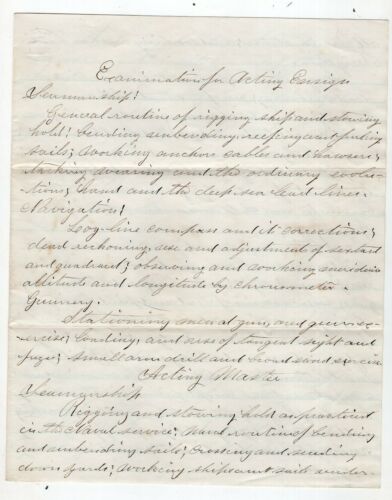 Examination for Acting Ensign
Seamanship!
General routine of rigging ship and stowing
hold; bending unbending, reefing and furling
sails; working anchors cables and hawsers;
tacking wearing and the ordinary evolu-
tions; hand and the deep-sea lead lines.
Navigation!
Log-line compass and it corrections;
dead reckoning, use and adjustment of sextant
and quadrant; observing and working meridian
altitude and longitude by chronometer.
Gunnery.
Stationing men at guns, and gun ex-
ercise; loading, and uses of tangent sight and
fuzes; small arm drill and broad sword exercise.
Acting Master
Seamanship
Rigging and stowing hold as practiced
in the Naval service; routine of bending
and unbending sails; crossing and sending
down yards; working ship and sails under-